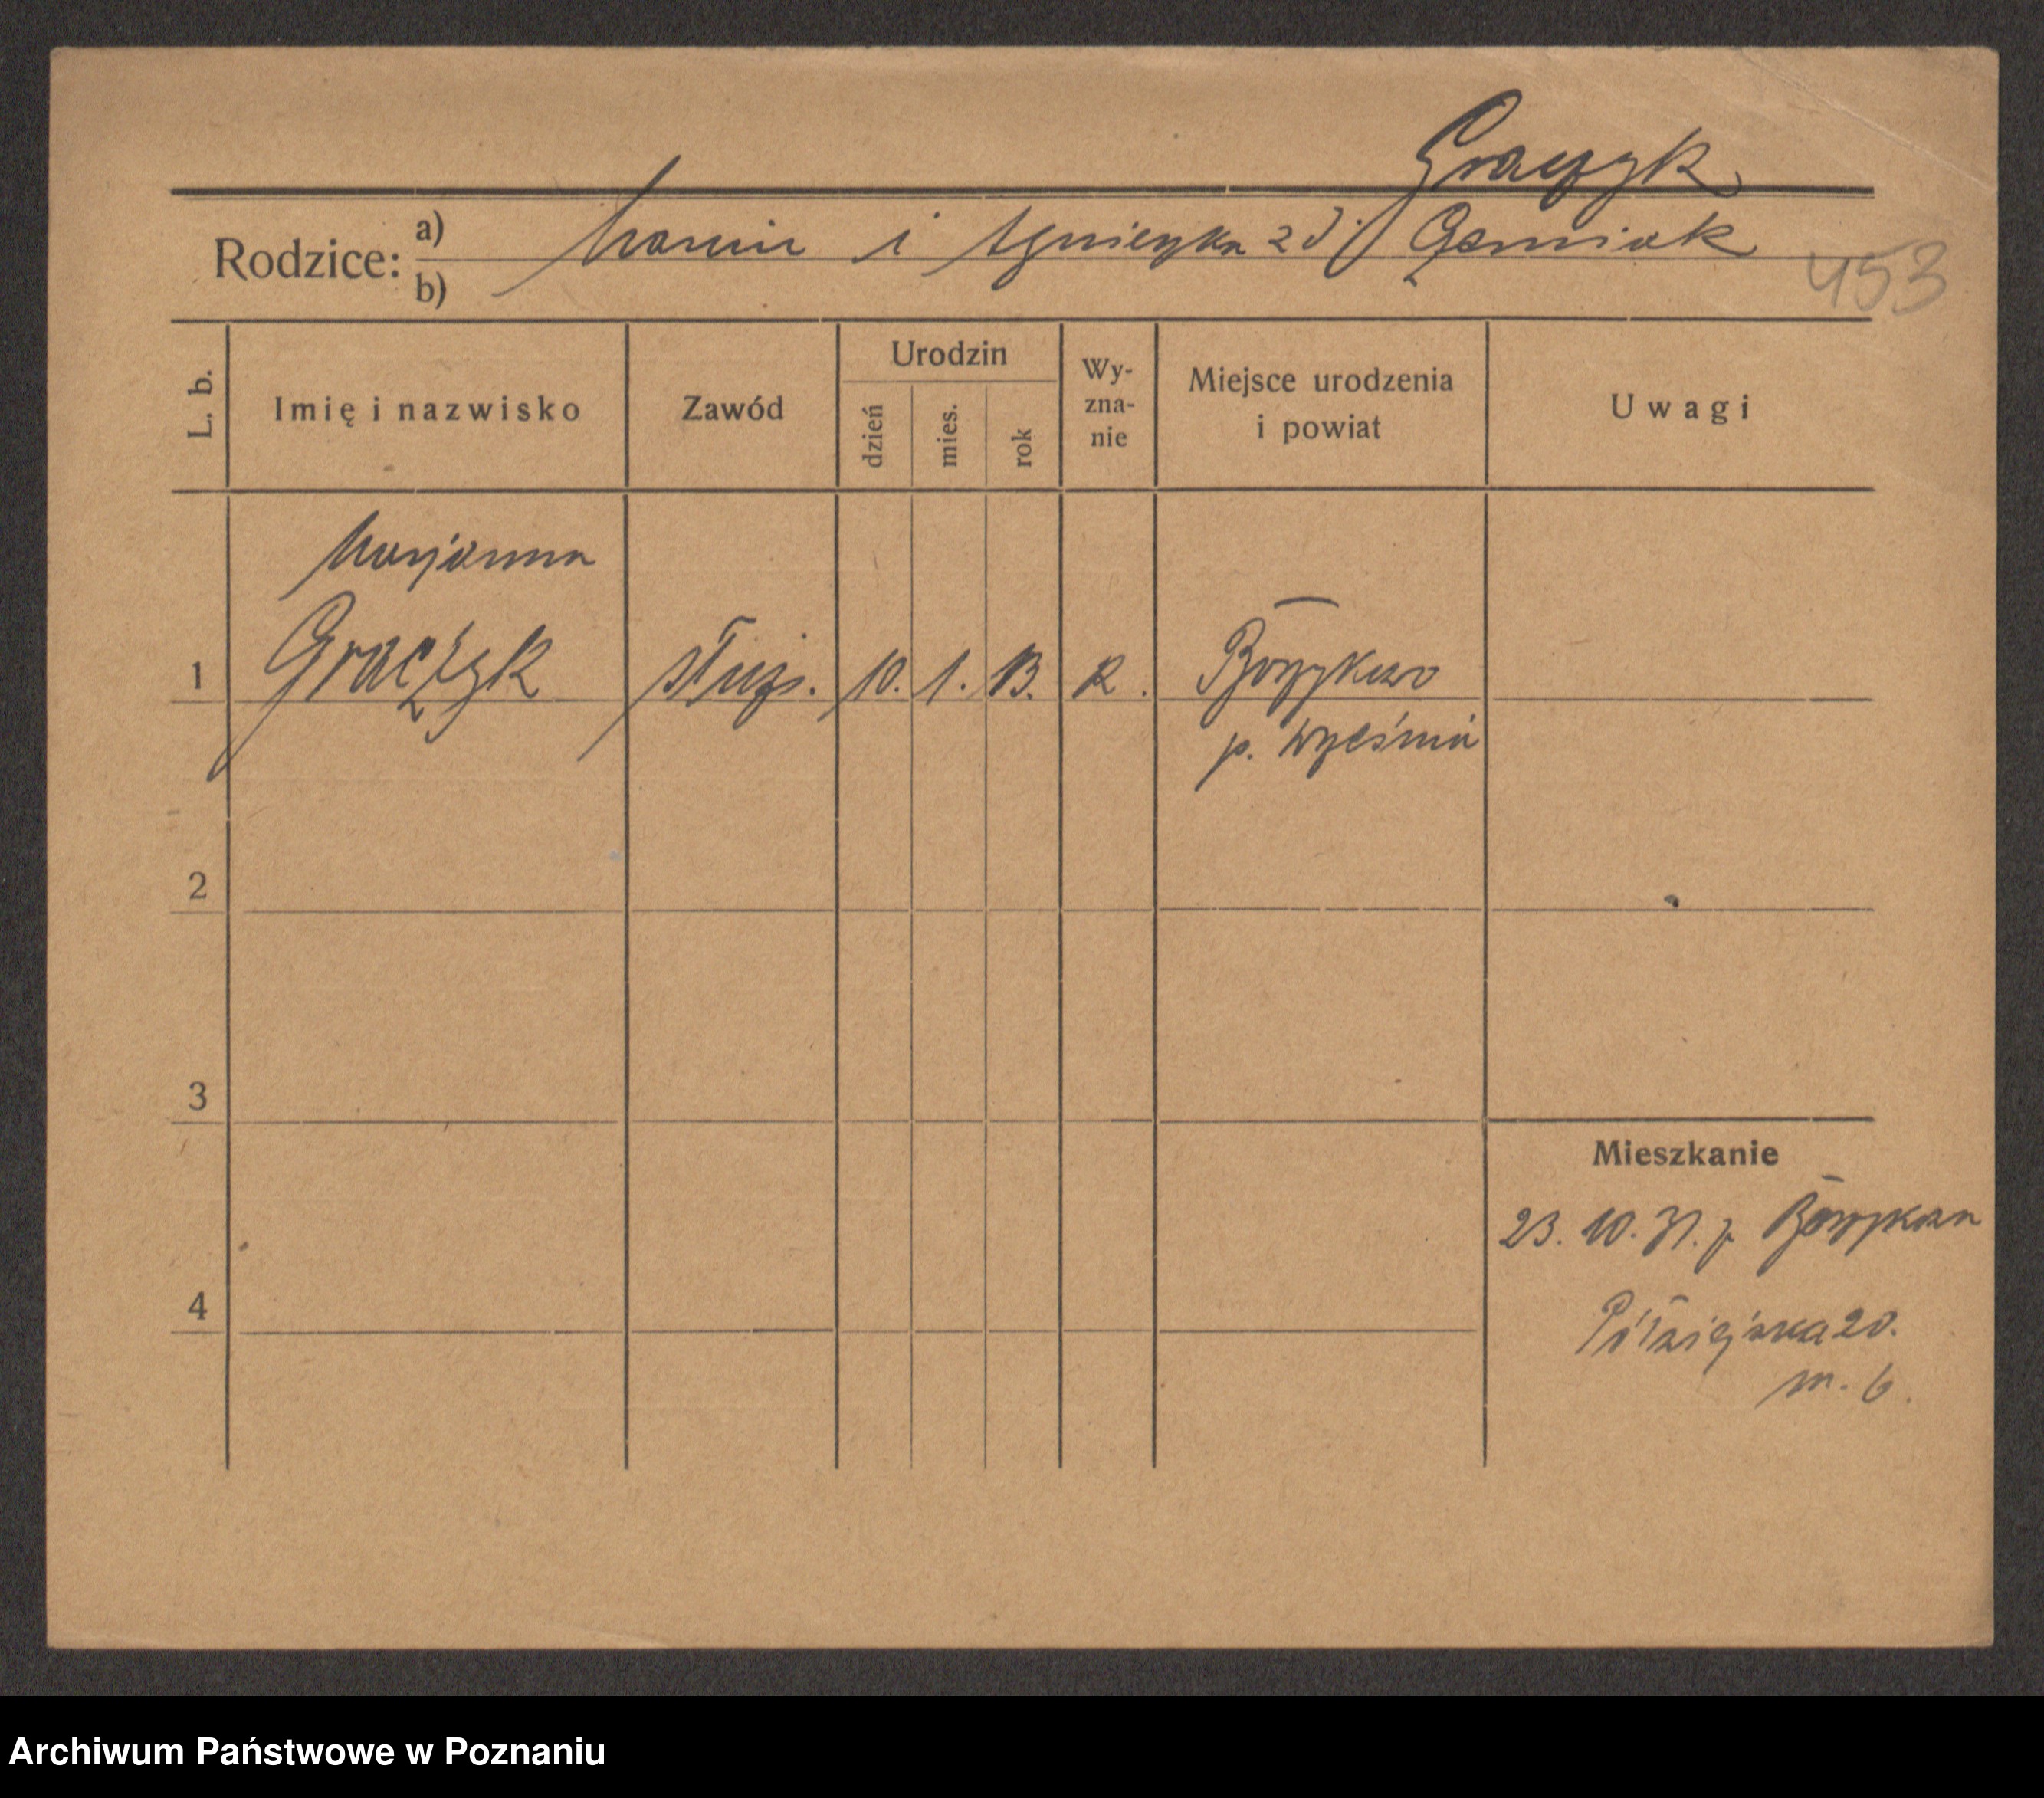 Graczyk
Rodzice: a) Marcin i Agnieszka z d.
b)
453
L. b.
Imię i nazwisko
Zawód
Urodzin
dzień
mies.
rok
Wy-
zna-
nie
Miejsce urodzenia
i powiat
Uwagi
Marjanna
1 Graczyk służ. 10. 1. 13. R.
p. Września
2
3
Mieszkanie
23. 10. 31. z
4
20.
m. 6.
Archiwum Państwowe w Poznaniu